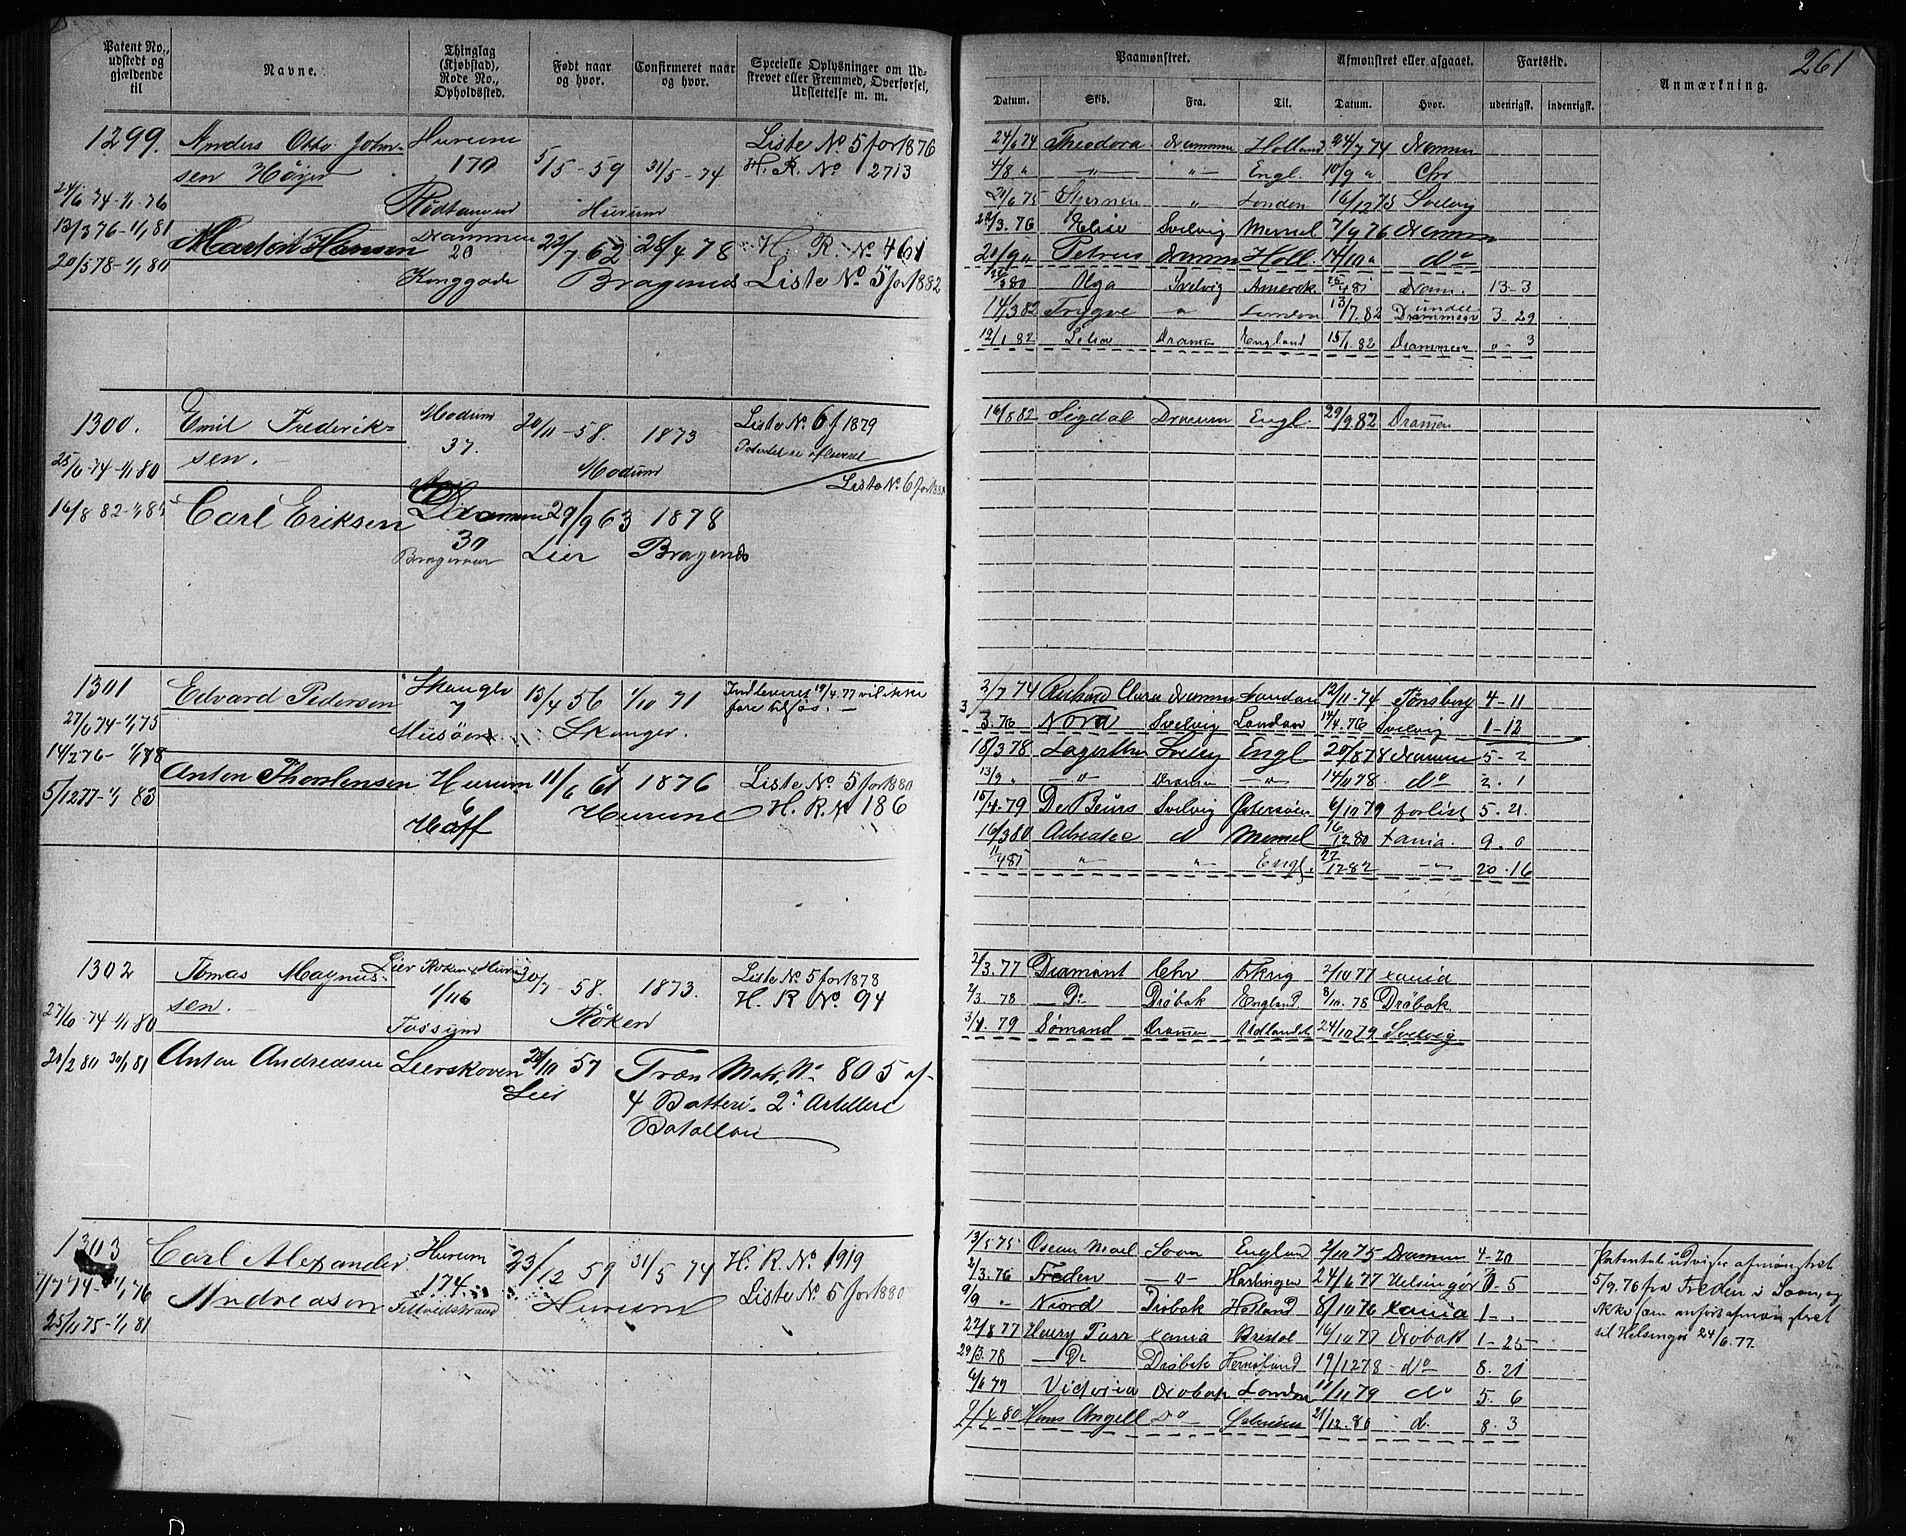 261
Patent No., udstedt og gjældende til
Navne.
Thinglag (Kjøbstad), Rode No., Opholdssted.
Født naar og hvor.
Confirmeret naar og hvor.
Specielle Oplysninger om Udskrevet eller Fremmed, Overførsel, Udslettelse m. m.
Paamønstret.
Afmønstret eller afgaaet.
Fartstid.
Anmærkning.
Datum. Skib. Fra. Til. Datum. Hvor. udenrigsk. indenrigsk.
1299. Anders Otto John- Hurum 5/5 - 59 31/5 - 74 Liste No 5 for 1876
sen Höyer 170 H. R. No 2713
24/6 74 - 1/1 76 Rödtangen Hurum
13/3 76 - 1/1 81
Martin Hansen Drammen 22/7 62 28/4 78 H. R. No 461
20/5 78 - 1/1 80 20 Konggade Bragernes Liste No 5 for 1882
24/6 74 Theodora Drammen Holland 24/7 74 Drammen
4/8 " — " — " Engl. 10/9 " Chr
" London 16/12 75 Svelvig
22/3. 76 Elise Svelvig Memel 7/9 76 Drammen
20/9 " Petrus Drammen Holl. 14/10 " do
80 Olga Svelvig Amerik 81 Dram. 13-3
14/3 82 Trygve " London 13/7. 82 Drammen 3. 29
12/1 82 Dramen England 15/1. 82 Drammen 0 - 3
1300. Emil Frederik- Modum 20/11 - 58. 1873 Liste No 6 f 1879
sen. 37.
25/6 74 - 1/1 80 Modum
Liste No 6 for
16/8 82 - 1/1 85 Carl Eriksen Drammen 29/9 63 1878
30 Lier Bragernes
16/8 82 Sigdal Drammen Engl. 29/9 82 Dramen
1301 Edvard Pedersen Skanger 13/4 56 1/10 71 Indleveret 19/4. 77 vil ikke
27/6 74 - 1/1 75 7 fare tilsøs. —
14/2 76 - 1/1 78 Skanger.
Anton Thorstensen Hurum 11/6 61 1876 Liste No 5 for 1880
5/12 77 - 1/1 83 6 Hurum H. R. No 186
Haff
2/7 74 Richard Clara Drammen London 12/11 - 74 Tønsberg 4 - 11
3. 76 Nora Svelvig London 14/4. 76 Svelvig 1 - 12
18/3 78 Svelvig Engl 20/8 78 Drammen 5 - 2
13/9 " — " — Dramen — " — 14/11 78 do 2. 1
15/4. 79 De Beurs Svelvig Østersøen 6/10 79 forlist 5. 21.
16/3 80 d Memel 16/12 80 Xania. 9. 0
11/4 81 " " Engl. 27/12 82 — " — 20. 16
1302 Tomas Magnus- Lier Röken Hurum 20/7 - 58. 1873. Liste No 5 for 1878
sen. — 1/116 H. R No. 94
27/6 - 74 - 1/1 80 Röken
21/2 80 30/1 81 Anton Andreasen Lierskoven 28/10 57 Træn Matr. No 805 af
Lier 4 Batteri. 2n Artilleri
Batallon
2/3. 77 Diamant Chr 2/10 77 Xania
2/3. 78 — Do Dröbak England 8/10. 78 Dröbak
3/4. 79 Sömand Dramen Udlandet 24/10 79 Svelvig
1303 Carl Alexander Hurum 23/12 59 31/5 74 H. R. No. 1919
7/7 74 - 1/1 76 Andreasen 174. Hurum Liste No. 5 for 1880
25/11 75 - 1/1 81 Filtvedstrand
13/5 75 Oscar Mael Soon England 2/10 75 Drammen 4-20
2/3. 76 Freden — " — Harlingen 24/6 77 Helsingør 5
9/9 " Niord Dröbak Holland 8/10 76 Xania 1 - .
27/8 77 Henry Parr Xania Bristol 16/10 77 Dröbak 1 - 25
29/3. 78 — Do Dröbak Hernösand 19/12 78 do 8. 21
6/6 79 Victoria Dröbak London 11/11 79 do 5. 6
9/4 80 Hans Angell Do 21/12. 80 d. 8. 3
Patentet udviser afmönstret
5/9. 76 fra Freden i Soon, og
ikke som anfört afmönstret
til Helsingør 24/6. 77.